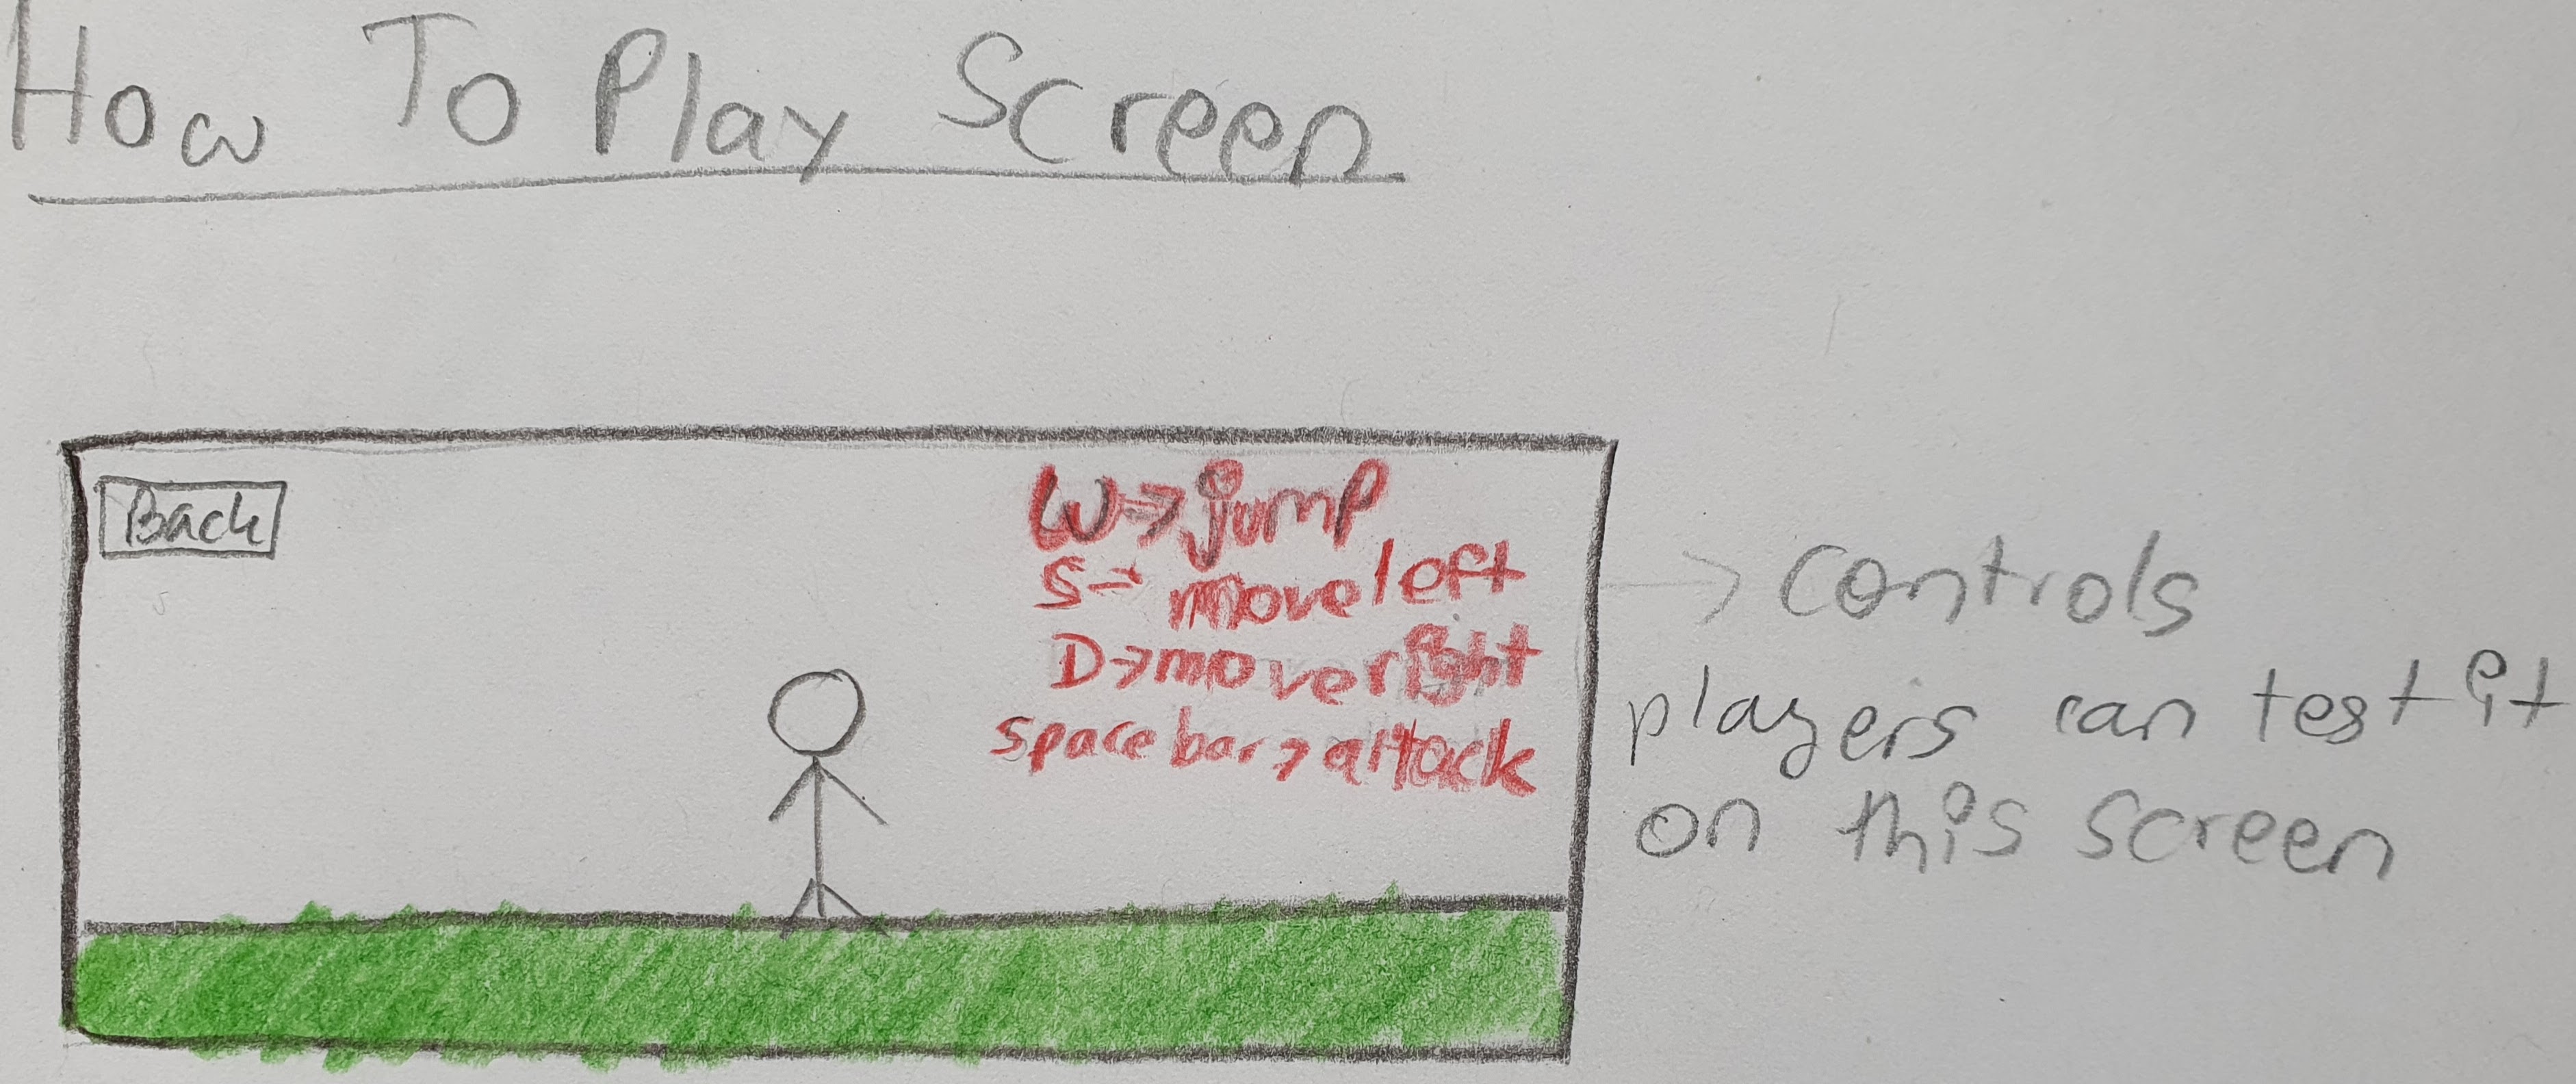 How To Play Screen
Back
W→jump
S→ move left
D→move right
space bar→attack
→ controls
players can test it
on this screen